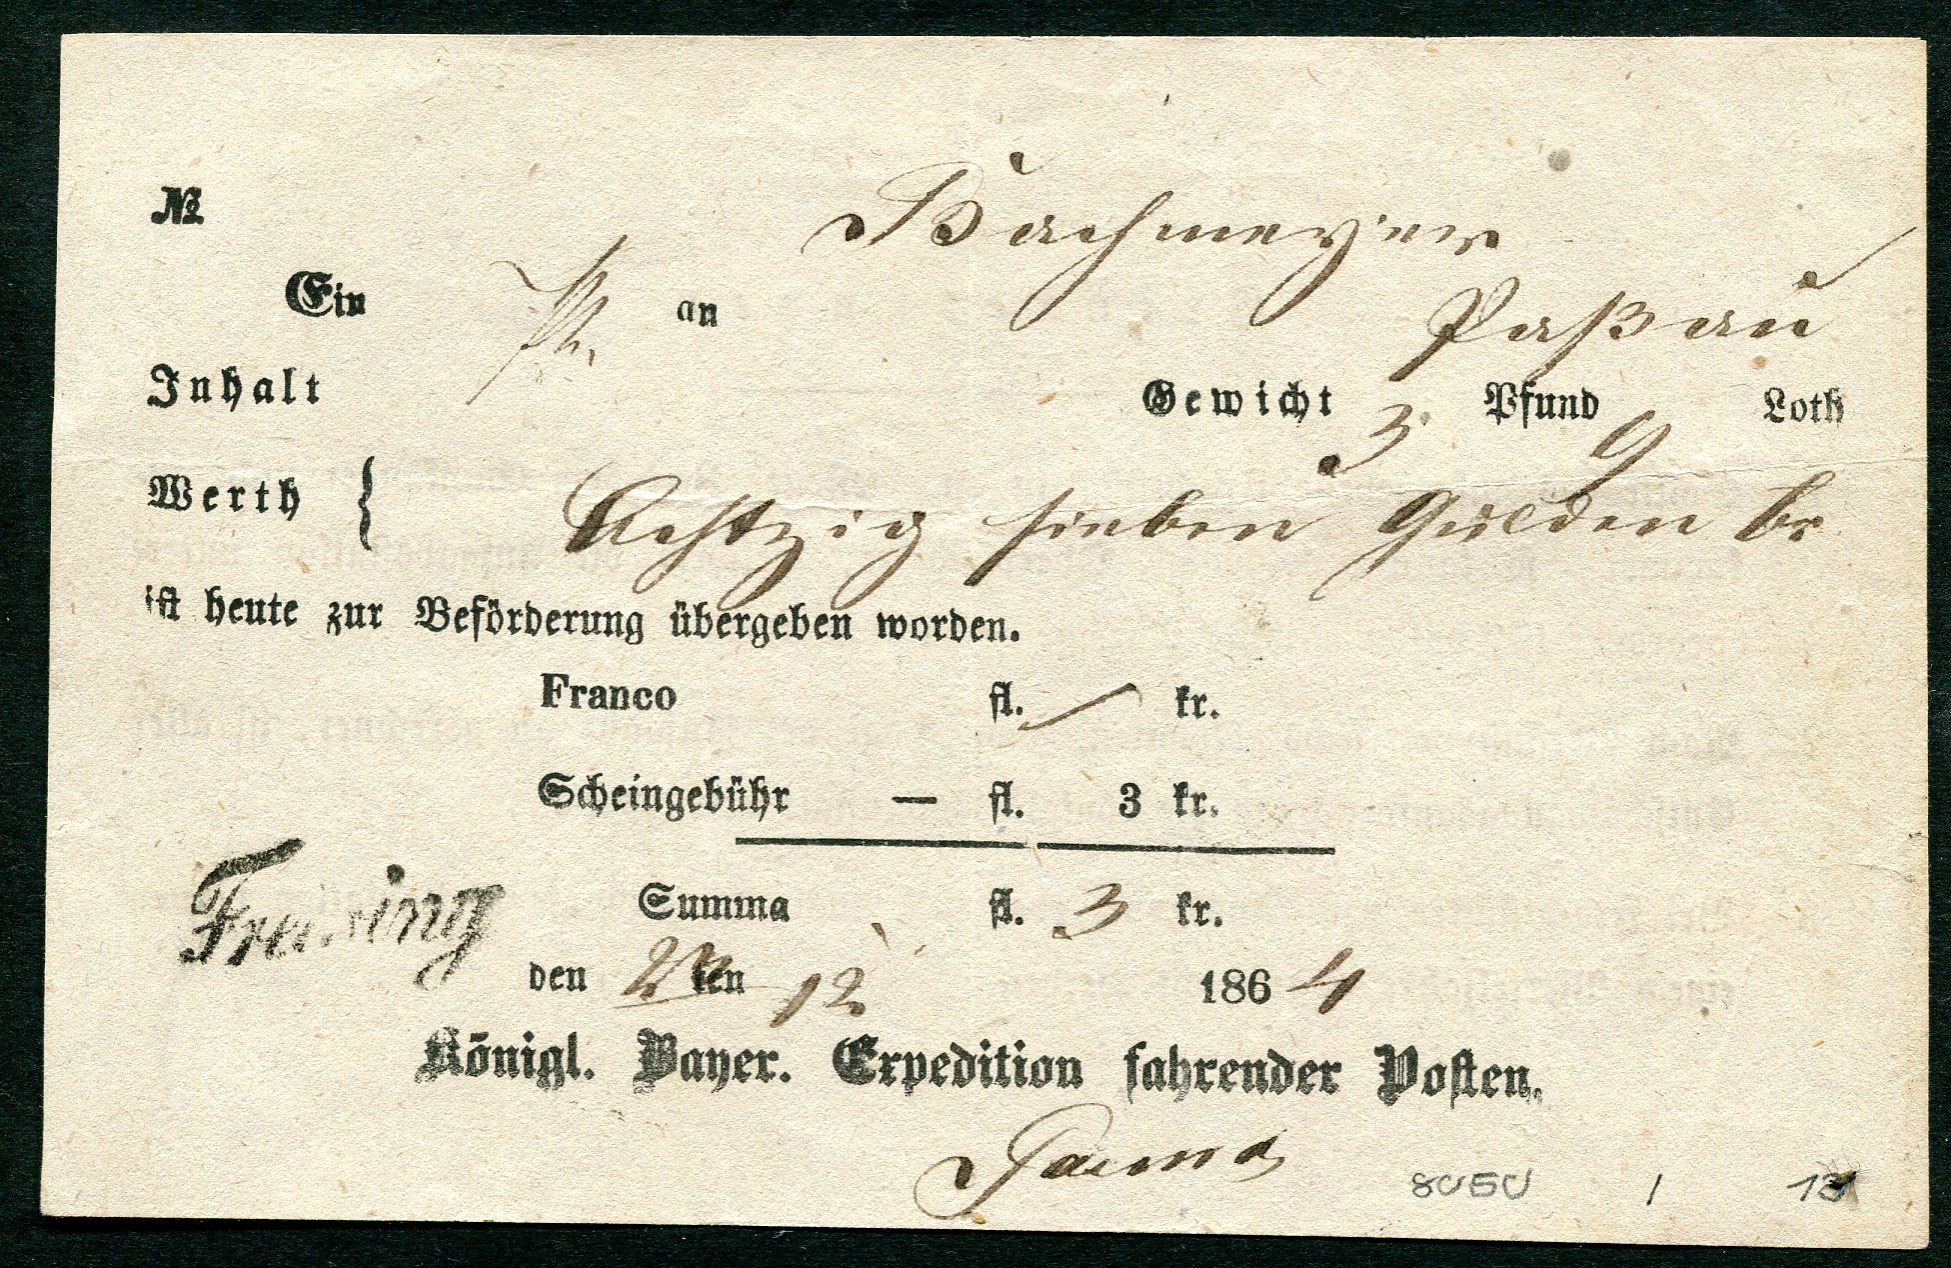 №
Bachmeyer
Ein an
Paßau
Inhalt Gewicht 3 Pfund 9 Loth
Werth { Achtzig sieben Gulden
ist heute zur Beförderung übergeben worden.
Franco fl. / kr.
Scheingebühr — fl. 3 kr.
Summa fl. 3 kr.
Freising
den ten 12 1864
Königl. Bayer. Expedition fahrender Posten.
8050 1 12